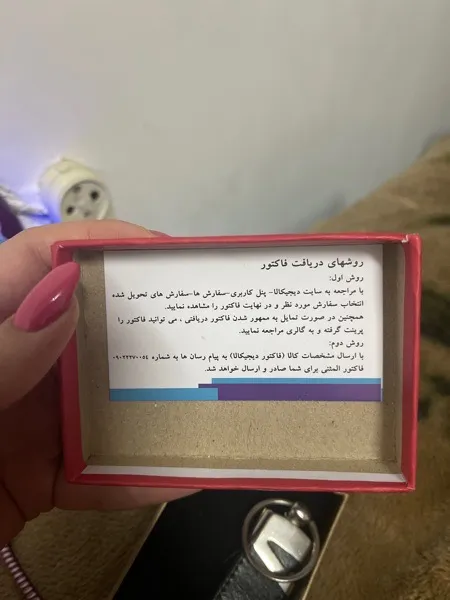 روشهای دریافت فاکتور
روش اول:
با مراجعه به سایت دیجیکالا- پنل کاربری-سفارش ها-سفارش های تحویل شده
انتخاب سفارش مورد نظر و در نهایت فاکتور را مشاهده نمایید.
همچنین در صورت تمایل به ممهور شدن فاکتور دریافتی ، می توانید فاکتور را
پرینت گرفته و به گالری مراجعه نمایید.
روش دوم:
با ارسال مشخصات کالا (فاکتور دیجیکالا) به پیام رسان ها به شماره
فاکتور المثنی برای شما صادر و ارسال خواهد شد.